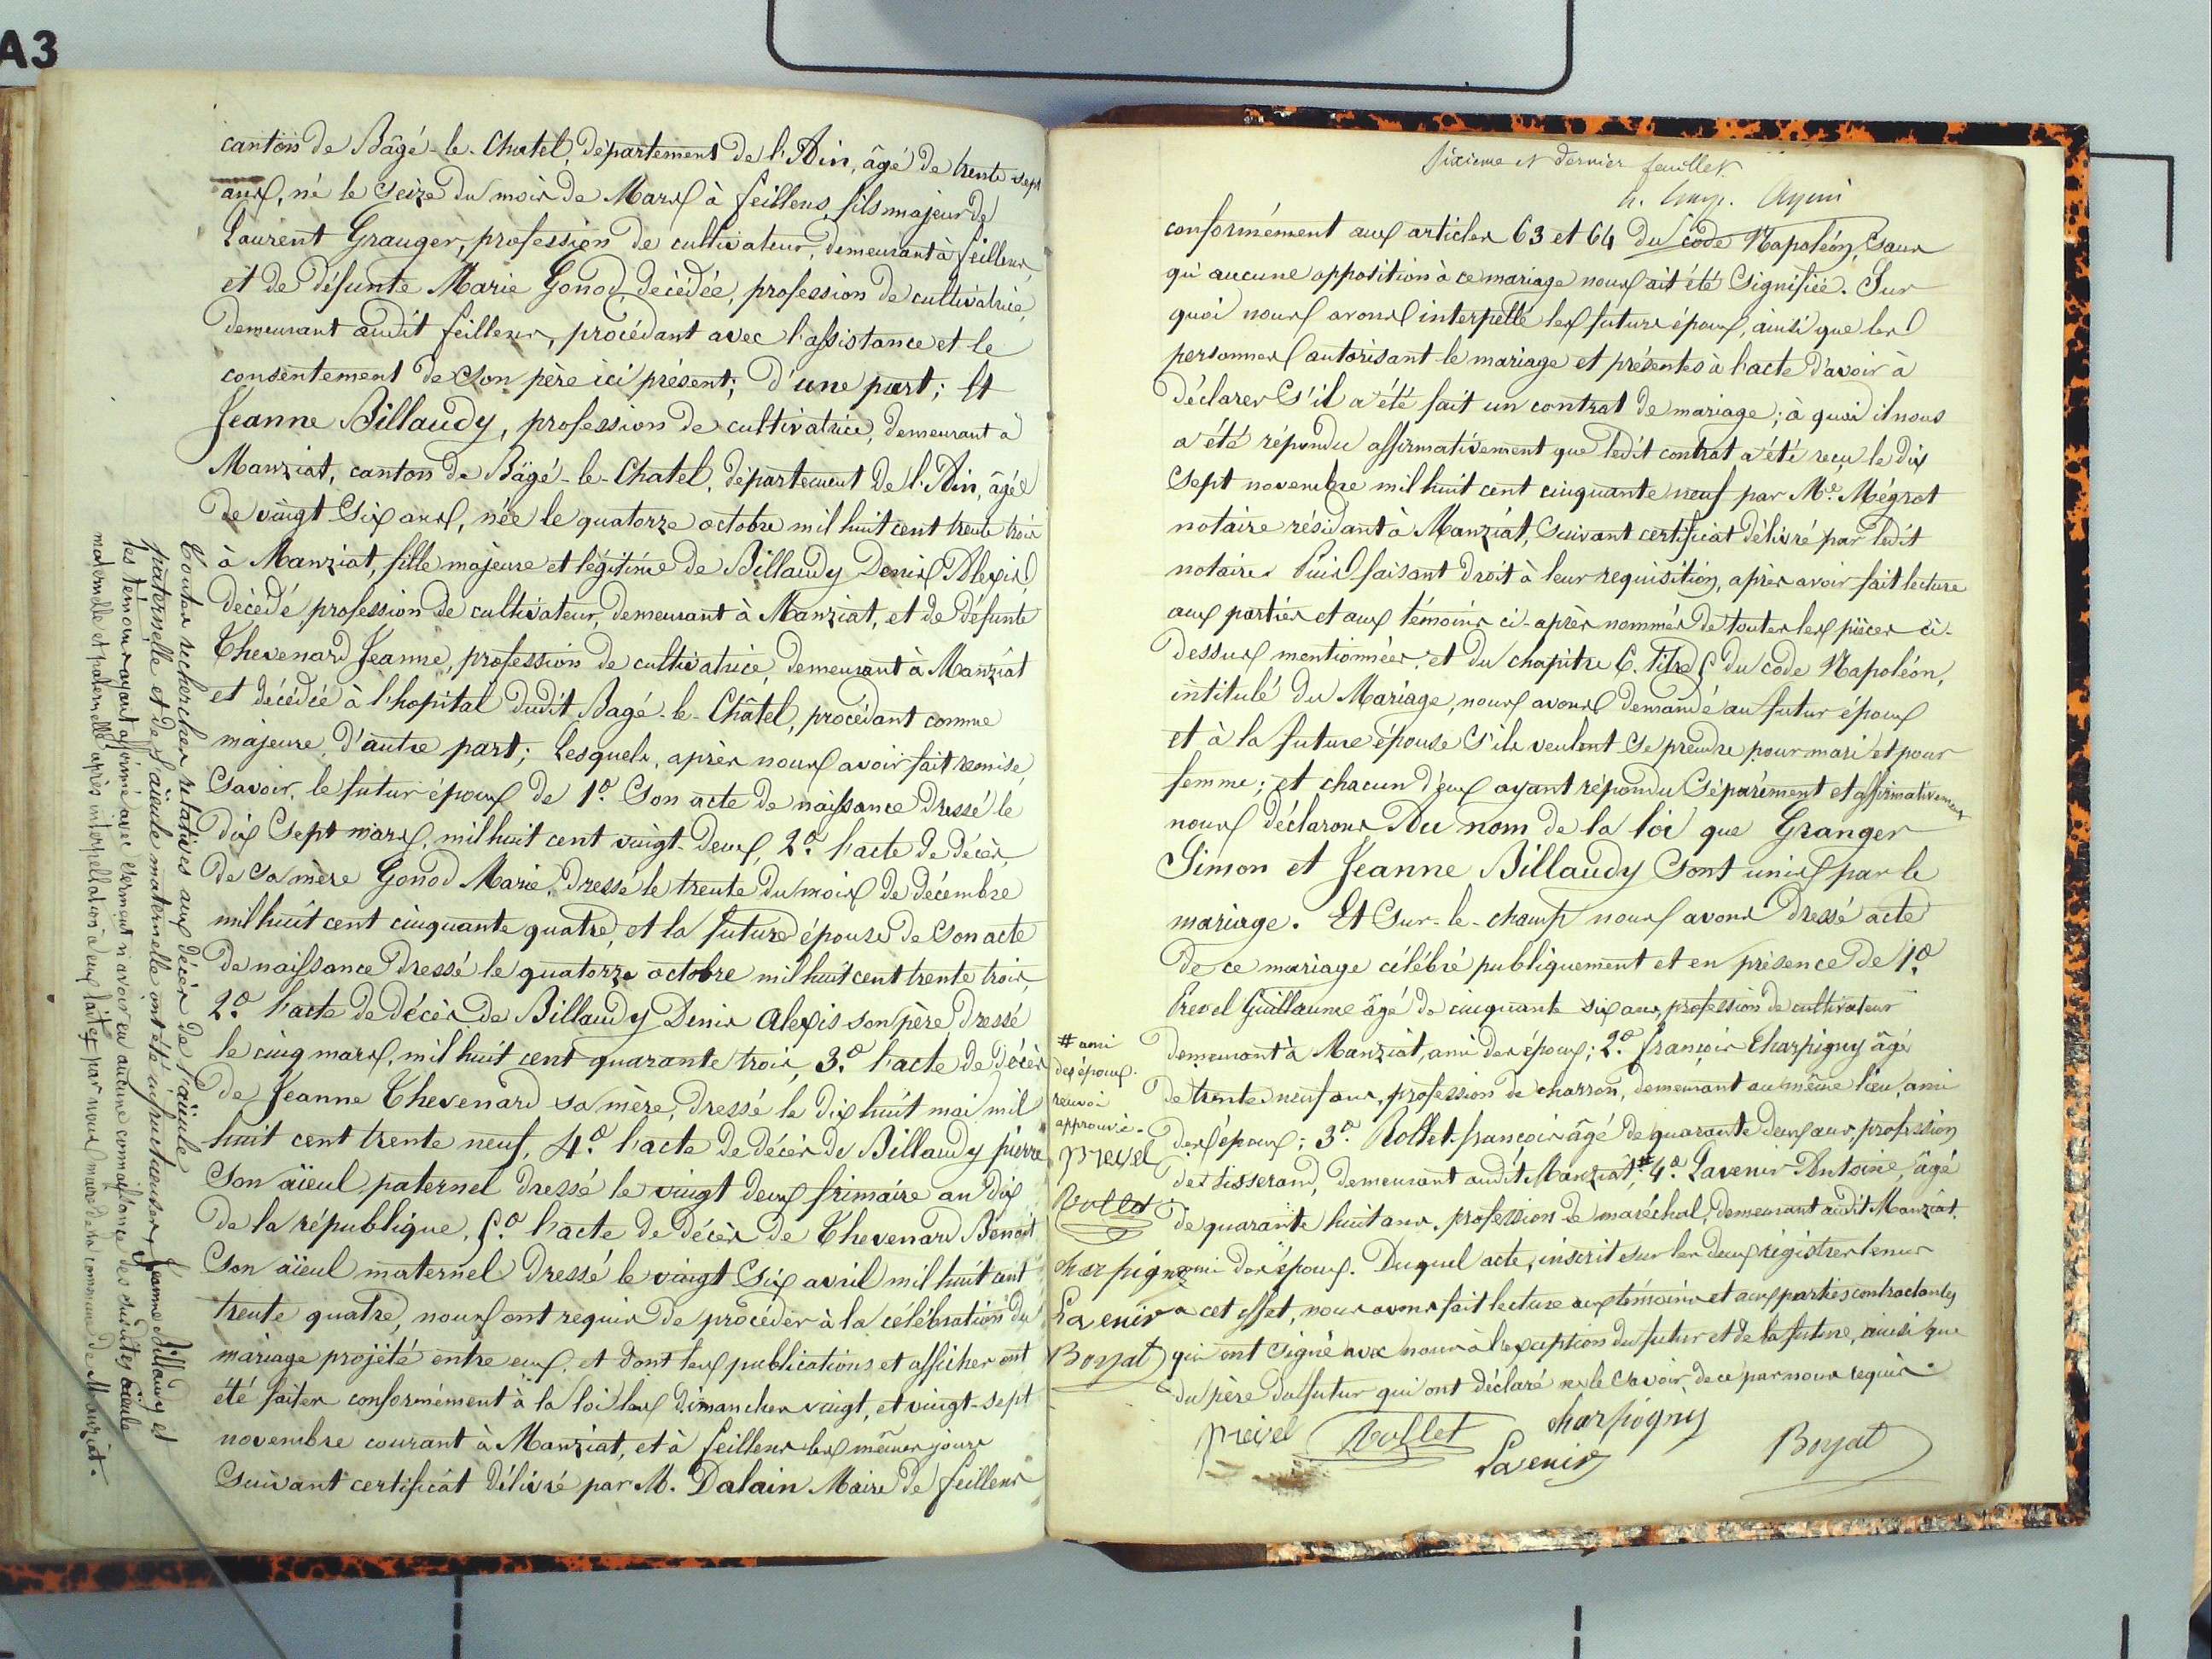 A3
canton de Bâgé-le-Chatel, département de l'Ain, âgé de trente sept
ans, né le seize du mois de Mars à feillens, fils majeur de
Laurent Granger, profession de cultivateur, demeurant à feillens,
et de défunte Marie Gonod, décédée, profession de cultivatrice,
demeurant audit feillens, procédant avec l'assistance et le
consentement de son père ici présent; d'une part; Et
Jeanne Billaudy, profession de cultivatrice, demeurant à
Manziat, canton de Bâgé-le-Chatel, département de l'Ain, âgée
de vingt six ans, née le quatorze octobre mil huit cent trente trois
à Manziat, fille majeure et légitime de Billaudy Denis Alexis
décédé, profession de cultivateur, demeurant à Manziat, et de défunte
Thevenard Jeanne, profession de cultivatrice, demeurant à Manziat
et décédée à l'hopital dudit Bagé-le-Châtel, procédant comme
majeure, d'autre part; Lesquels, après nous avoir fait remise,
Savoir, le futur époux de 1º. Son acte de naissance dressé le
dix sept mars, mil huit cent vingt-deux, 2º. l'acte de décès,
de sa mère Gonod Marie, dressé le trente du mois de décembre
mil huit cent cinquante quatre, et la future épouse de son acte
de naissance dressé le quatorze octobre mil huit cent trente trois,
2º. l'acte de décès de Billaudy Denis Alexis son père dressé
le cinq mars, mil huit cent quarante trois, 3º. l'acte de décès
de Jeanne Thevenard sa mère, dressé le dix huit mai mil
huit cent trente neuf, 4º. l'acte de décès de Billaudy pierre
Son aïeul paternel dressé le vingt deux frimaire an dix
de la république, 5º. l'acte de décès de Thevenard Benoit
Son aïeul maternel dressé le vingt six avril mil huit cent
trente quatre, nous ont requis de procéder à la célébration du
mariage projeté entre eux, et dont les publications et affiches ont
été faites conformément à la loi les dimanches vingt, et vingt-sept
novembre courant à Manziat, et à feillens les mêmes jours
Suivant certificat délivré par M. Dalain Maire de feillens
Toutes recherches relatives aux décès de l'aïeule
paternelle et de l'aïeule maternelle ont été infructueuses, Jeanne Billaudy et
les témoins ayant affirmé avec serment n'avoir eu aucune connaissance des susdites aïeule
maternelle et paternelle après interpellation à eux faites par nous maire de la commune de Manziat.
sixieme et dernier feuillet
conformément aux articles 63 et 64 du code Napoléon, Sans
qu'aucune opposition à ce mariage nous ait été signifiée. Sur
quoi nous avons interpellé les futurs époux, ainsi que les
personnes autorisant le mariage et présentes à l'acte d'avoir à
déclarer s'il a été fait un contrat de mariage; à quoi il nous
a été répondu affirmativement que ledit contrat a été reçu le dix
Sept novembre mil huit cent cinquante neuf par Me. Mégrot
notaire résidant à Manziat, suivant certificat délivré par ledit
notaire. Puis faisant droit à leur requisition, après avoir fait lecture
aux parties et aux témoins ci-après nommés de toutes les pièces ci-
dessus mentionnées, et du chapitre 6. Titre 5 du code Napoléon,
intitulé du Mariage, nous avons demandé au futur époux
et à la future épouse s'ils veulent se prendre pour mari et pour
femme; et chacun d'eux ayant répondu Séparément et affirmativement
nous déclarons Au nom de la loi que Granger
Simon et Jeanne Billaudy sont unis par le
mariage. Et Sur-le-champ nous avons dressé acte
de ce mariage célébré publiquement et en présence de 1º.
Prevel Guillaume âgé de cinquante six ans, profession de cultivateur
demeurant à Manziat, ami des époux; 2º. françois Charpigny âgé
de trente neuf ans, profession de charron, demeurant au même lieu, ami
des époux; 3º. Rollet françois âgé de quarante deux ans, profession
de tisserand, demeurant audit Manziat,# 4º. Lavenir Antoine, âgé
de quarante huit ans, profession de maréchal, demeurant audit Manziat,
ami des époux. Duquel acte, inscrit sur les deux régistres tenus
à cet effet, nous avons fait lecture aux témoins et aux parties contractantes
qui ont signé avec nous à l'exception du futur et de la future, ainsi que
du père du futur qui ont déclaré ne le savoir, de ce par nous requis.
# ami
des époux.
renvoi
approuvé.
prevel
Rollet
charpigny
Lavenir
Boyat
prevel Rollet charpigny
Lavenir Boyat